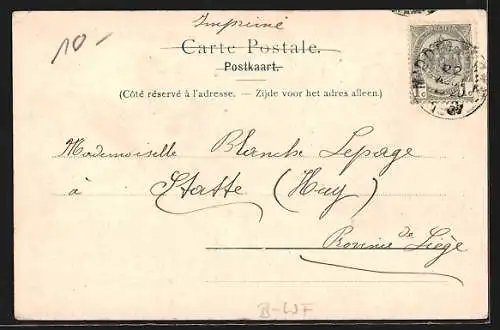 Imprimé
10-
Carte Postale.
Postkaart.
(Côté réservé à l'adresse. — Zijde voor het adres alleen.)
Mademoiselle Blanche Lepage
à Statte (Huy)
Province de Liège
B-WF